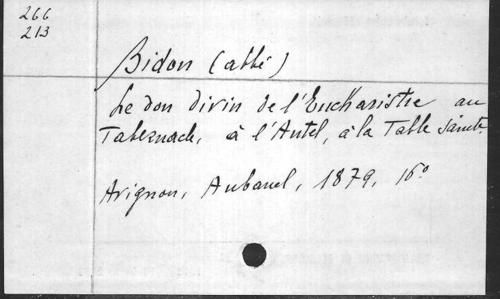 266
213
Bidon (abbé)
Le don divin de l'Eucharistie au
Tabernacle, à l'Autel, à la Table sainte.
Avignon, Aubanel, 1879, 16°